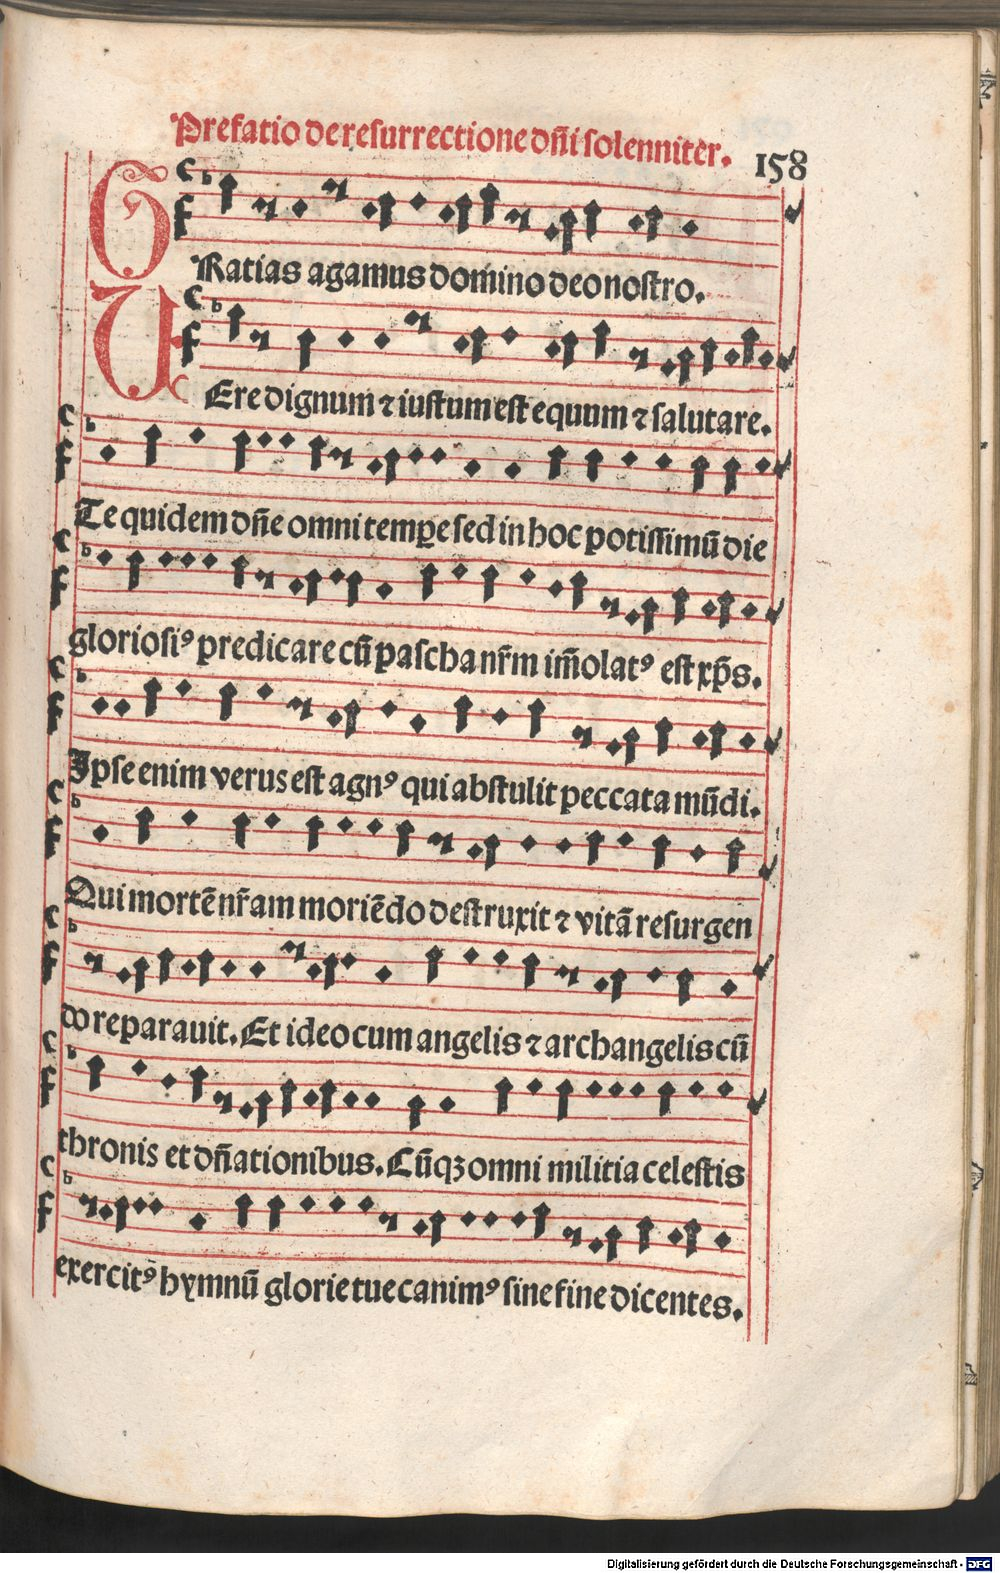 Prefatio de resurrectione dn̄i solenniter.
158
GRatias agamus domino deo nostro.
VEre dignum ⁊ iustum est equum ⁊ salutare.
Te quidem dn̄e omni temꝑe sed in hoc potissimū die
gloriosiꝰ predicare cū pascha nr̄m im̄olatꝰ est xp̄s.
Ipse enim verus est agnꝰ qui abstulit peccata mūdi.
Qui mortē nr̄am moriēdo destruxit ⁊ vitā resurgen
do reparauit. Et ideo cum angelis ⁊ archangelis cū
thronis et dn̄ationibus. Cūqꝫ omni militia celestis
exercitꝰ hymnū glorie tue canimꝰ sine fine dicentes.
Digitalisierung gefördert durch die Deutsche Forschungsgemeinschaft - DFG